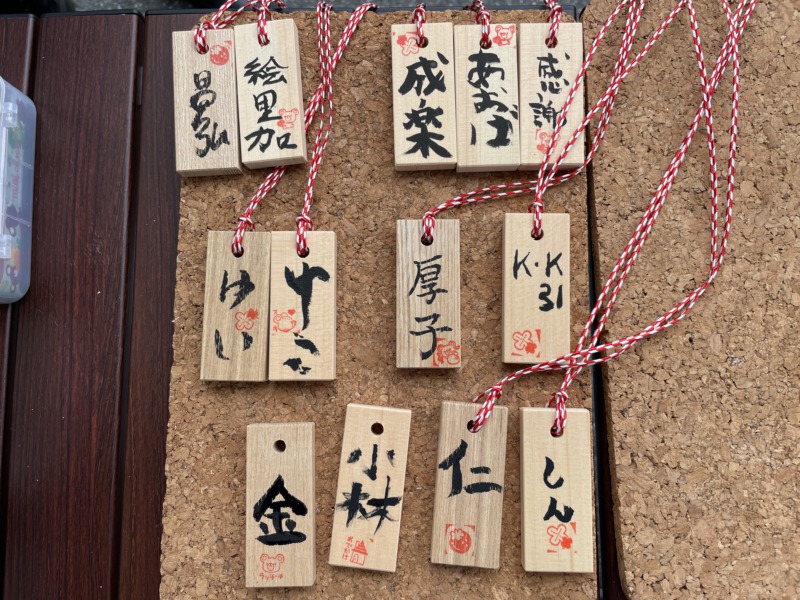 昌弘
絵里加
成楽
あおば
感謝
ゆい
ゆうな
厚子
K・K
31
金
小林
仁
しん